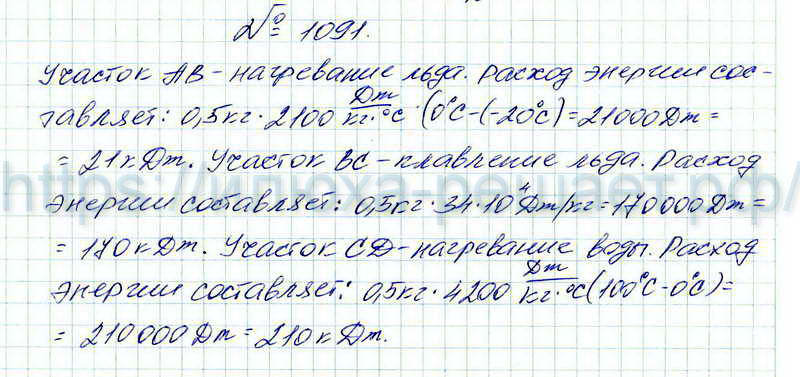 № 1091.
Участок АВ - нагревание льда. Расход энергии сос-
тавляет: 0,5кг · 2100 Дж/кг·°С · (0°С-(-20°С) = 21000 Дж =
= 21 кДж. Участок ВС - плавление льда. Расход
энергии составляет: 0,5кг · 34 · 10⁴ Дж/кг = 170000 Дж =
= 170 кДж. Участок CD - нагревание воды. Расход
энергии составляет: 0,5кг · 4200 Дж/кг·°С (100°С-0°С) =
= 210000 Дж = 210 кДж.